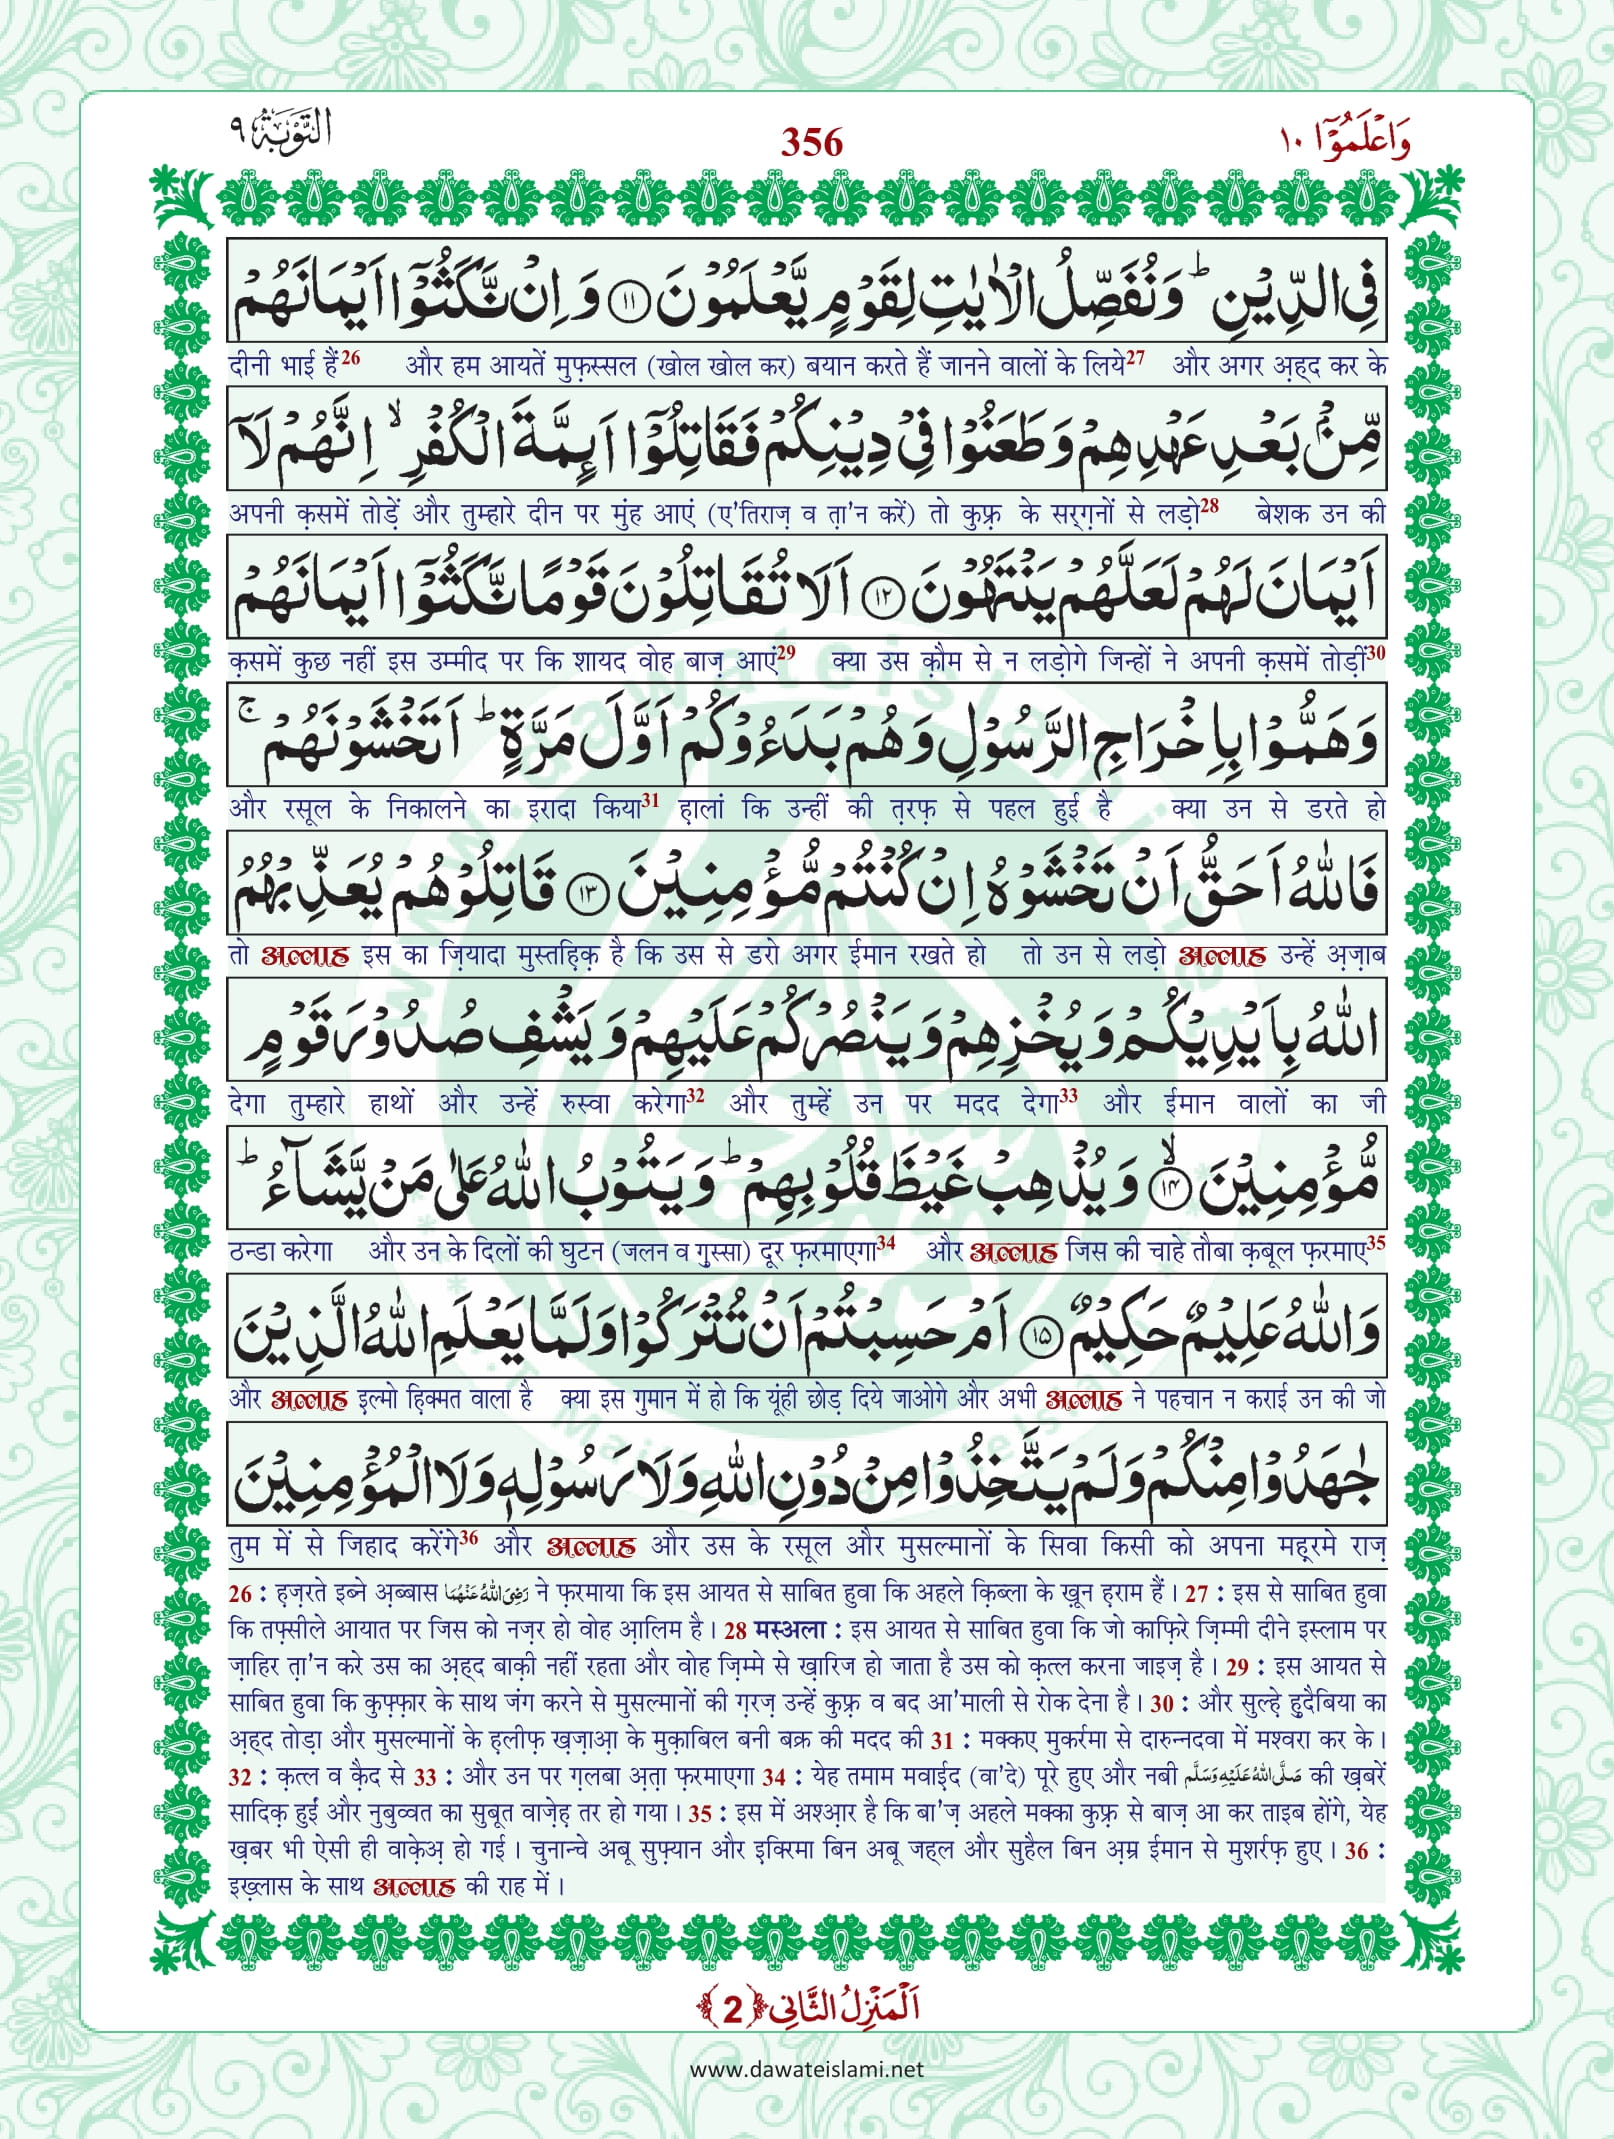 وَاعْلَمُوْٓا ١٠
356
التَّوْبَة ٩
فِی الدِّیْنِ ؕ وَ نُفَصِّلُ الْاٰیٰتِ لِقَوْمٍ یَّعْلَمُوْنَ ﴿۱۱﴾ وَ اِنْ نَّكَثُوْۤا اَیْمَانَهُمْ
दीनी भाई हैं26 और हम आयतें मुफ़स्सल (खोल खोल कर) बयान करते हैं जानने वालों के लिये27 और अगर अ़ह्द कर के
مِّنْۢ بَعْدِ عَهْدِهِمْ وَ طَعَنُوْا فِیْ دِیْنِكُمْ فَقَاتِلُوْۤا اَىِٕمَّةَ الْكُفْرِ ۙ اِنَّهُمْ لَاۤ
अपनी क़समें तोड़ें और तुम्हारे दीन पर मुंह आएं (ए'तिराज़ व ता़'न करें) तो कुफ़्र के सरग़नों से लड़ो28 बेशक उन की
اَیْمَانَ لَهُمْ لَعَلَّهُمْ یَنْتَهُوْنَ ﴿۱۲﴾ اَلَا تُقَاتِلُوْنَ قَوْمًا نَّكَثُوْۤا اَیْمَانَهُمْ
क़समें कुछ नहीं इस उम्मीद पर कि शायद वोह बाज़ आएं29 क्या उस क़ौम से न लड़ोगे जिन्हों ने अपनी क़समें तोड़ीं30
وَ هَمُّوْا بِاِخْرَاجِ الرَّسُوْلِ وَ هُمْ بَدَءُوْكُمْ اَوَّلَ مَرَّةٍ ؕ اَتَخْشَوْنَهُمْ ۚ
और रसूल के निकालने का इरादा किया31 ह़ालां कि उन्हीं की त़रफ़ से पहल हुई है क्या उन से डरते हो
فَاللّٰهُ اَحَقُّ اَنْ تَخْشَوْهُ اِنْ كُنْتُمْ مُّؤْمِنِیْنَ ﴿۱۳﴾ قَاتِلُوْهُمْ یُعَذِّبْهُمُ
तो अल्लाह इस का ज़ियादा मुस्तह़िक़ है कि उस से डरो अगर ईमान रखते हो तो उन से लड़ो अल्लाह उन्हें अ़ज़ाब
اللّٰهُ بِاَیْدِیْكُمْ وَ یُخْزِهِمْ وَ یَنْصُرْكُمْ عَلَیْهِمْ وَ یَشْفِ صُدُوْرَ قَوْمٍ
देगा तुम्हारे हाथों और उन्हें रुस्वा करेगा32 और तुम्हें उन पर मदद देगा33 और ईमान वालों का जी
مُّؤْمِنِیْنَ ﴿ۙ۱۴﴾ وَ یُذْهِبْ غَیْظَ قُلُوْبِهِمْ ؕ وَ یَتُوْبُ اللّٰهُ عَلٰى مَنْ یَّشَآءُ ؕ
ठन्डा करेगा और उन के दिलों की घुटन (जलन व गुस्सा) दूर फ़रमाएगा34 और अल्लाह जिस की चाहे तौबा क़बूल फ़रमाए35
وَ اللّٰهُ عَلِیْمٌ حَكِیْمٌ ﴿۱۵﴾ اَمْ حَسِبْتُمْ اَنْ تُتْرَكُوْا وَ لَمَّا یَعْلَمِ اللّٰهُ الَّذِیْنَ
और अल्लाह इ़ल्मो हि़क्मत वाला है क्या इस गुमान में हो कि यूंही छोड़ दिये जाओगे और अभी अल्लाह ने पहचान न कराई उन की जो
جٰهَدُوْا مِنْكُمْ وَ لَمْ یَتَّخِذُوْا مِنْ دُوْنِ اللّٰهِ وَ لَا رَسُوْلِهٖ وَ لَا الْمُؤْمِنِیْنَ
तुम में से जिहाद करेंगे36 और अल्लाह और उस के रसूल और मुसल्मानों के सिवा किसी को अपना मह़रमे राज़
26 : ह़ज़रते इब्ने अ़ब्बास رَضِیَ اللّٰهُ عَنْهُمَا ने फ़रमाया कि इस आयत से साबित हुवा कि अहले क़िब्ला के ख़ून ह़राम हैं। 27 : इस से साबित हुवा
कि तफ़्सीले आयात पर जिस को नज़र हो वोह आ़लिम है। 28 मस्अला : इस आयत से साबित हुवा कि जो काफ़िरे ज़िम्मी दीने इस्लाम पर
ज़ाहिर ता़'न करे उस का अ़ह्द बाक़ी नहीं रहता और वोह ज़िम्मे से ख़ारिज हो जाता है उस को क़त्ल करना जाइज़ है। 29 : इस आयत से
साबित हुवा कि कुफ़्फ़ार के साथ जंग करने से मुसल्मानों की ग़रज़ उन्हें कुफ़्र व बद आ'माली से रोक देना है। 30 : और सुल्ह़े हु़दैबिया का
अ़ह्द तोड़ा और मुसल्मानों के ह़लीफ़ ख़ज़ाआ़ के मुक़ाबिल बनी बक्र की मदद की 31 : मक्कए मुकर्रमा से दारुन्नदवा में मश्वरा कर के।
32 : क़त्ल व क़ैद से 33 : और उन पर ग़लबा अ़ता़ फ़रमाएगा 34 : येह तमाम मवाई़द (वा'दे) पूरे हुए और नबी صَلَّی اللّٰهُ عَلَیْهِ وَسَلَّم की ख़बरें
सादिक़ हुईं और नुबुव्वत का सुबूत वाज़ेह़ तर हो गया। 35 : इस में अश्आ़र है कि बा'ज़ अहले मक्का कुफ़्र से बाज़ आ कर ताइब होंगे, येह
ख़बर भी ऐसी ही वाक़ेअ़ हो गई। चुनान्चे अबू सुफ़्यान और इ़क्रिमा बिन अबू जह्ल और सुहैल बिन अ़म्र ईमान से मुशर्रफ़ हुए। 36 :
इख़्लास के साथ अल्लाह की राह में।
اَلْمَنْزِلُ الثَّانِی ﴿2﴾
www.dawateislami.net